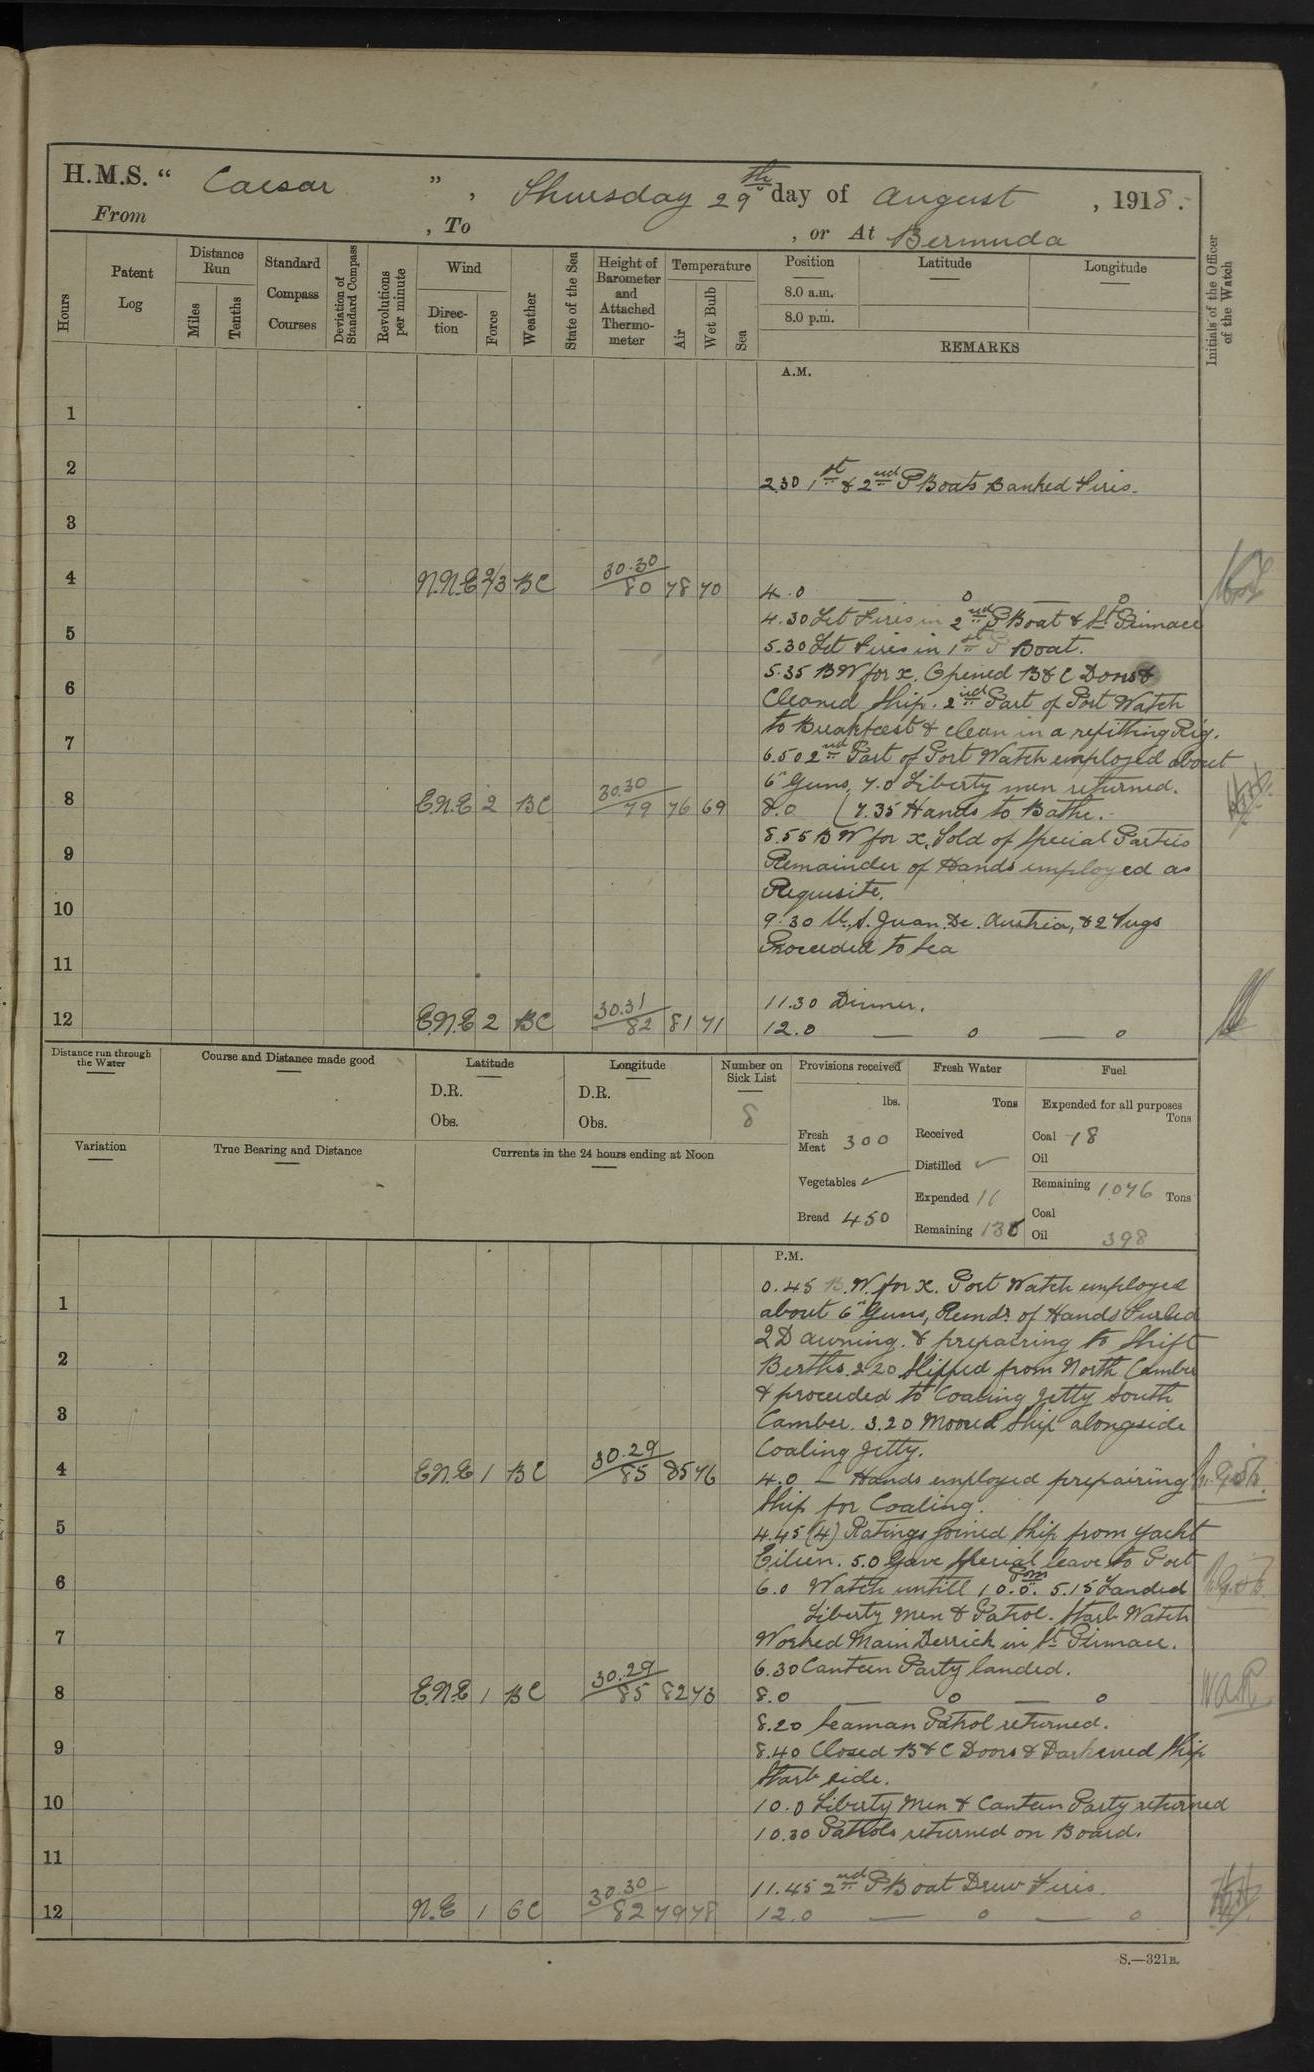 H.M.S. “ Caesar ” , Thursday 29th day of August , 1918.
From , To , or At Bermuda
Hours
Patent Log
Distance Run
Miles
Tenths
Standard Compass Courses
Deviation of Standard Compass
Revolutions per minute
Wind
Direction
Force
Weather
State of the Sea
Height of Barometer and Attached Thermometer
Temperature
Air
Wet Bulb
Sea
Position Latitude Longitude
8.0 a.m.
8.0 p.m.
REMARKS
Initials of the Officer of the Watch
A.M.
1
2
2.30 1st & 2nd P Boats Banked Fires.
3
4 N.N.E 2/3 BC 30.30 80 78 70 4.0 — o — o
4.30 Let Fires in 2nd P Boat & St Pinnace
5
5.30 Let Fires in 1st P Boat.
5.35 B W for x. Opened B & C Doors &
6
Cleaned Ship. 2nd Part of Port Watch
to Breakfast & clean in a refitting Rig.
7
6.50 2nd Part of Port Watch employed about
6" Guns, 7.0 Liberty men returned.
8 E.N.E 2 BC 30.30 79 76 69 8.0 (7.35 Hands to Bathe.
8.55 B W for x, Told of Special Parties
9
Remainder of Hands employed as
Requisite.
10
9.30 U.S. Juan De Austria, & 2 Tugs
Proceeded to Sea
11
11.30 Dinner.
12 E.N.E 2 BC 30.31 82 81 71 12.0 — o — o
Distance run through the Water
Course and Distance made good
Latitude
D.R.
Obs.
Longitude
D.R.
Obs.
Number on Sick List
8
Provisions received
lbs.
Fresh Meat 300
Vegetables ✓
Bread 450
Fresh Water
Tons
Received
Distilled ✓
Expended 11
Remaining
Fuel
Expended for all purposes
Tons
Coal 18
Oil
Remaining 1076 Tons
Coal
Oil 398
Variation
True Bearing and Distance
Currents in the 24 hours ending at Noon
P.M.
0.45 B.W. for x. Port Watch employed
1
about 6" Guns, Remdr of Hands Furled
2 D awning. & prepairing to Shift
2
Berths. 2.20 Slipped from North Camber
& proceeded to Coaling Jetty South
3
Camber. 3.20 Moored Ship alongside
Coaling Jetty.
4 E.N.E 1 BC 30.29 85 85 76 4.0 — Hands employed prepairing
Ship for Coaling.
5
4.45 (4) Ratings joined Ship from yacht
Eileen. 5.0 Gave Special leave to Port
6
6.0 Watch untill 10.0 Pm. 5.15 Landed
Liberty Men & Patrol. Starb Watch
7
Worked Main Derrick in St Pinnace.
6.30 Canteen Party landed.
8 E.N.E 1 BC 30.29 85 82 73 8.0 — o — o
8.20 Seaman Patrol returned.
9
8.40 Closed B & C Doors & Darkened Ship
Starb side.
10
10.0 Liberty Men & Canteen Party returned
10.30 Patrols returned on Board.
11
11.45 2nd P Boat Drew Fires.
12 N.E 1 BC 30.30 82 79 78 12.0 — o — o
S.—321B.